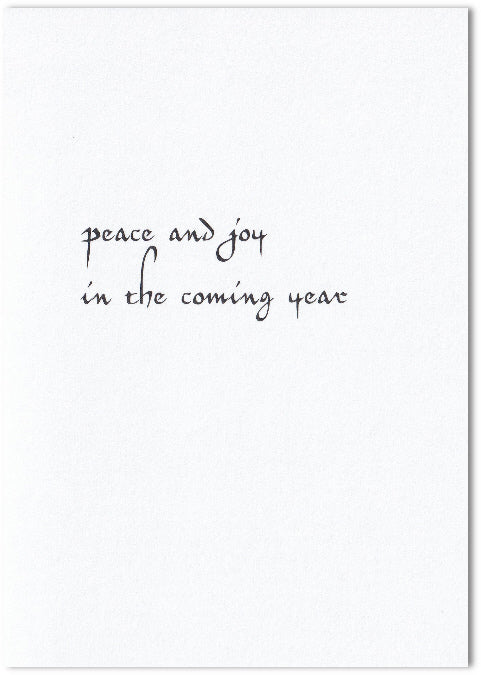 peace and joy
in the coming year